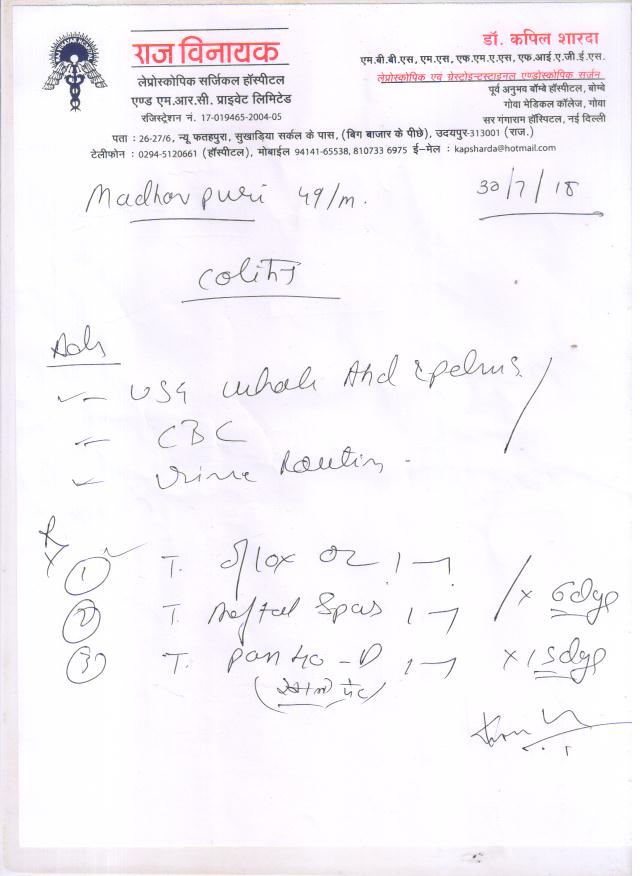 राज विनायक
लेप्रोस्कोपिक सर्जिकल हॉस्पीटल
एण्ड एम.आर.सी. प्राइवेट लिमिटेड
रजिस्ट्रेशन नं. 17-019465-2004-05
डॉ. कपिल शारदा
एम.बी.बी.एस, एम.एस, एफ.एम.ए.एस, एफ.आई.ए.जी.ई.एस.
लेप्रोस्कोपिक एवं गेस्ट्रोइन्टस्टाइनल एण्डोस्कोपिक सर्जन
पूर्व अनुभव बॉम्बे हॉस्पीटल, बोम्बे
गोवा मेडिकल कॉलेज, गोवा
सर गंगाराम हॉस्पिटल, नई दिल्ली
पता : 26-27/6, न्यू फतहपुरा, सुखाड़िया सर्कल के पास, (बिग बाजार के पीछे), उदयपुर-313001 (राज.)
टेलीफोन : 0294-5120661 (हॉस्पीटल), मोबाईल 94141-65538, 810733 6975 ई-मेल : kapsharda@hotmail.com
Madhav puri 49/m.
30/7/18
Colitis
Adv
USG whole Abd & pelvis
CBC
Urine Routin
Rx
1 T. oflox OZ 1-1
2 T. Meftal Spas 1-1 x 6 days
3 T. Pan 40-D 1-1 x 15 days